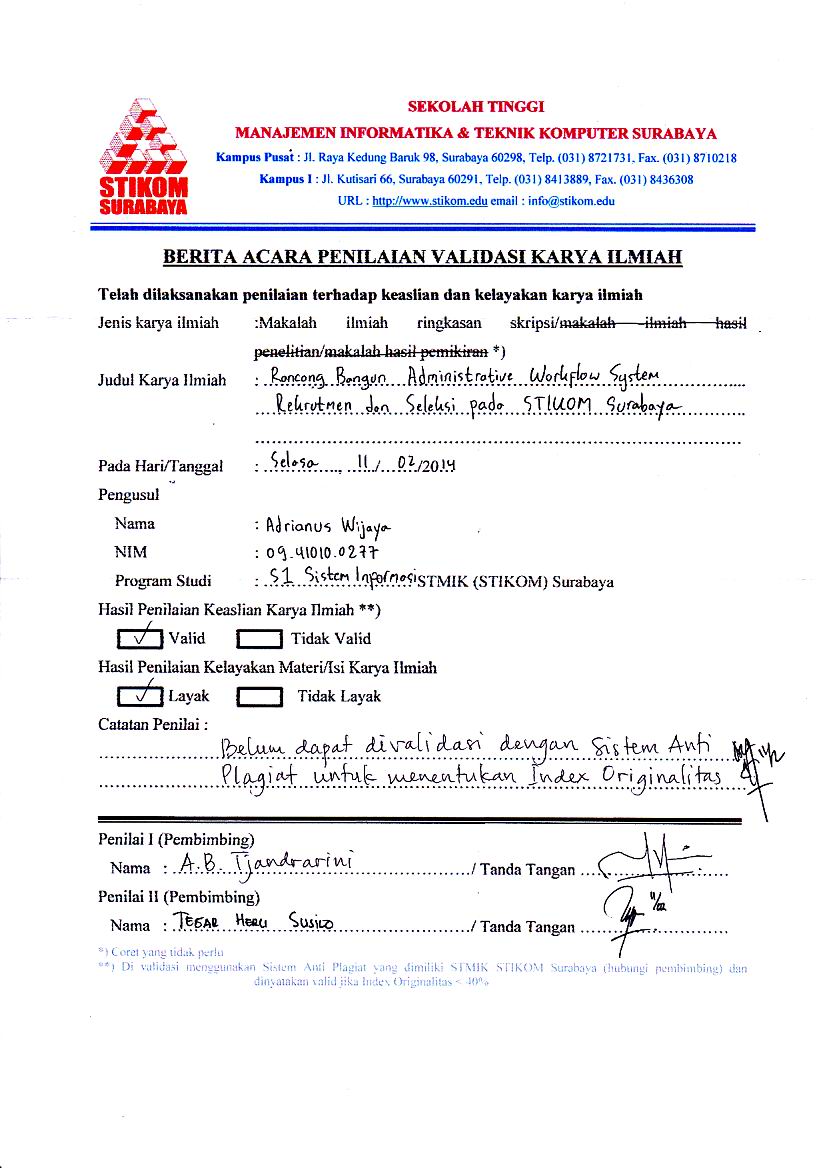 STIKOM
SURABAYA
SEKOLAH TINGGI
MANAJEMEN INFORMATIKA & TEKNIK KOMPUTER SURABAYA
Kampus Pusat : Jl. Raya Kedung Baruk 98, Surabaya 60298, Telp. (031) 8721731, Fax. (031) 8710218
Kampus I : Jl. Kutisari 66, Surabaya 60291, Telp. (031) 8413889, Fax. (031) 8436308
URL : http://www.stikom.edu email : info@stikom.edu
BERITA ACARA PENILAIAN VALIDASI KARYA ILMIAH
Telah dilaksanakan penilaian terhadap keaslian dan kelayakan karya ilmiah
Jenis karya ilmiah :Makalah ilmiah ringkasan skripsi/makalah ilmiah hasil
penelitian/makalah hasil pemikiran *)
Judul Karya Ilmiah : Rancang Bangun Administrative Workflow System
Rekrutmen dan Seleksi pada STIKOM Surabaya
Pada Hari/Tanggal : Selasa, 11/02/2014
Pengusul
Nama : Adrianus Wijaya
NIM : 09.41010.0277
Program Studi : S1 Sistem Informasi STMIK (STIKOM) Surabaya
Hasil Penilaian Keaslian Karya Ilmiah **)
✓ Valid Tidak Valid
Hasil Penilaian Kelayakan Materi/Isi Karya Ilmiah
✓ Layak Tidak Layak
Catatan Penilai :
Belum dapat divalidasi dengan Sistem Anti
Plagiat untuk menentukan Index Originalitas
Penilai I (Pembimbing)
Nama : A.B. Tjandrarini / Tanda Tangan
Penilai II (Pembimbing)
Nama : TEGAR HERU SUSILO / Tanda Tangan
*) Coret yang tidak perlu
**) Di validasi menggunakan Sistem Anti Plagiat yang dimiliki STMIK STIKOM Surabaya (hubungi pembimbing) dan
dinyatakan valid jika Index Originalitas < 40%